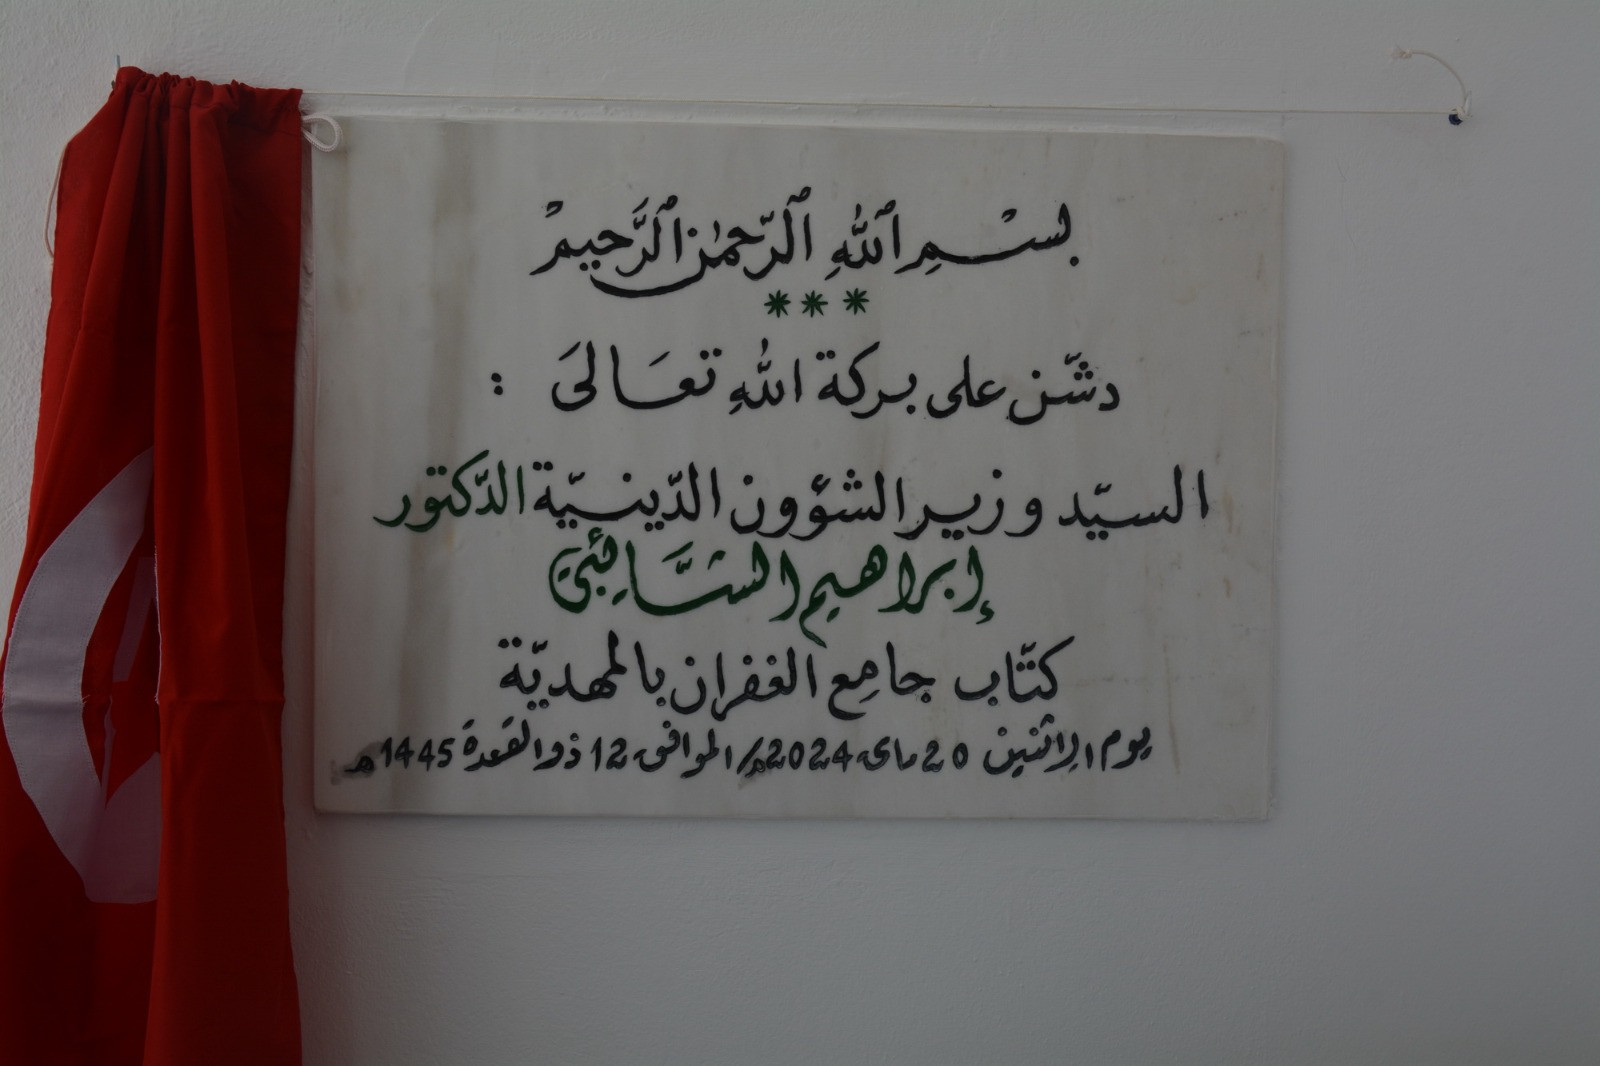 بِسْمِ ٱللّٰهِ ٱلرَّحْمٰنِ ٱلرَّحِيمِ
***
دشّن على بركة اللّٰهِ تعَالىَ :
السيّد وزير الشؤون الدّينيّة الدّكتور
إبراهيم الشَّائِبي
كتّاب جامع الغفران بالمهديّة
يوم الإثنين 20 ماي 2024م/ الموافق 12 ذو القعدة 1445هـ